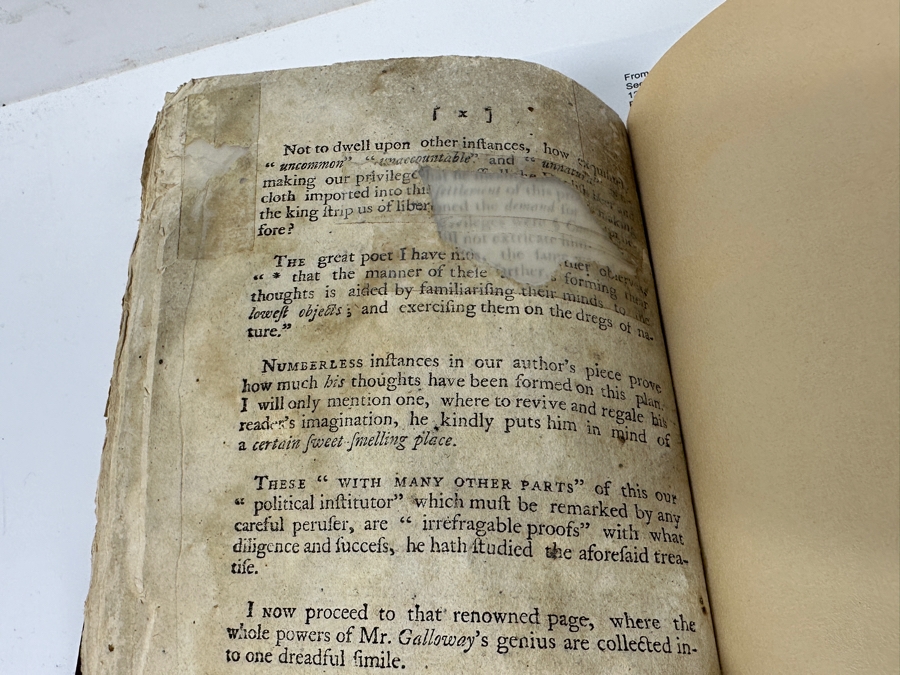 [ x ]
Not to dwell upon other inſtances, how
“ uncommon” “ unaccountable” and “
making our privilege
cloth imported into this
the king ſtrip us of liber
fore?
ſettlement of this
the demand for
not extricate him
THE great poet I have
“ * that the manner of theſe forming their
thoughts is aided by familiariſing their minds to the
loweſt objects; and exerciſing them on the dregs of na-
ture.”
NUMBERLESS inſtances in our author's piece prove
how much his thoughts have been formed on this plan.
I will only mention one, where to revive and regale his
reader's imagination, he kindly puts him in mind of
a certain ſweet-ſmelling place.
THESE “ WITH MANY OTHER PARTS” of this our
“ political inſtitutor” which muſt be remarked by any
careful peruſer, are “ irrefragable proofs” with what
diligence and ſucceſs, he hath ſtudied the aforeſaid trea-
tiſe.
I NOW proceed to that renowned page, where the
whole powers of Mr. Galloway's genius are collected in-
to one dreadful ſimile.
From